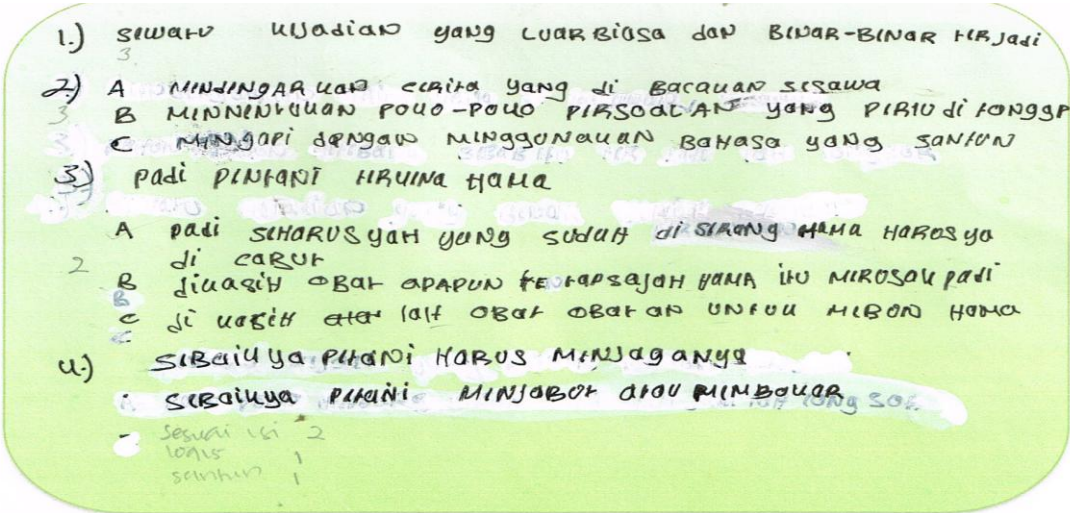 1.) SEWATU KEJADIAN yang LUAR Biasa dan BENAR-BENAR TERJadi
3
2.) A MENDENGARKAN CERITA yang di BACAKAN SISAWA
3 B MENNENTUKAN POKO-POKO PERSOALAN yang PERLU di TONGGP
3 C MENgapi dengan MENggunakan BAHASA yang SANTUN
3.) Padi PENTANI TERKENA HAMA
A padi SEHARUSYAH yang SUDAH di SERANG HAMA HAROSya
2 di CABUT
B dikasih OBAT APAPUN TETAPSAJAH HAMA ITU MEROSAK padi
C di kasih lalt OBAT OBATAN UNTUK MEBON HAMA
4.) SEBAIKya PETANI HARUS MENJAGANYA
- SEBAIKya PETANI MENJABOT atau MEMBAKAR
- Sesuai isi 2
logis 1
santun 1